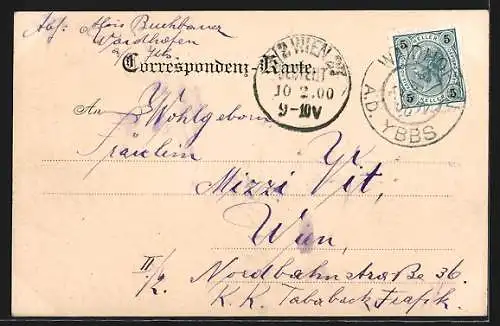 Abs: Alois Buchbauer
Waidhofen
a/ Ybbs.
Correspondenz-Karte.
WIEN
10 2.00
9-10V
5 5
5 5
A.D. YBBS
An Wohlgeboren
Fräulein
Mizzi Vit,
Wien,
II/2. Nordbahnstraße 36.
K. K. Taback Trafik.